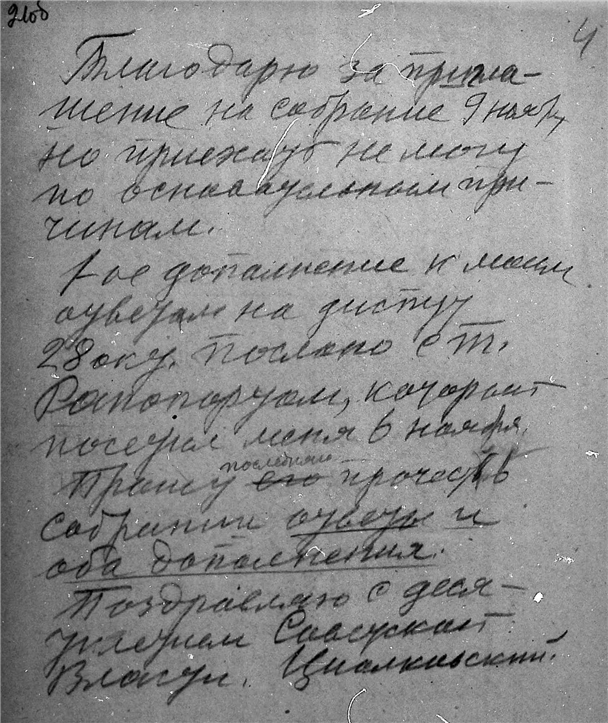 2 об
4
Благодарю за пригла-
шение на собрание 9 ноября,
но приехать не могу
по основательным при-
чинам.
1-ое дополнение к моим
ответам на диспут
28 окт. послано с т.
Рапопортом, который
посетил меня 6 ноября.
последнее
Прошу его прочесть в
собрании ответы и
оба дополнения.
Поздравляю с деся-
тилетием Советской
Власти. Циолковский.